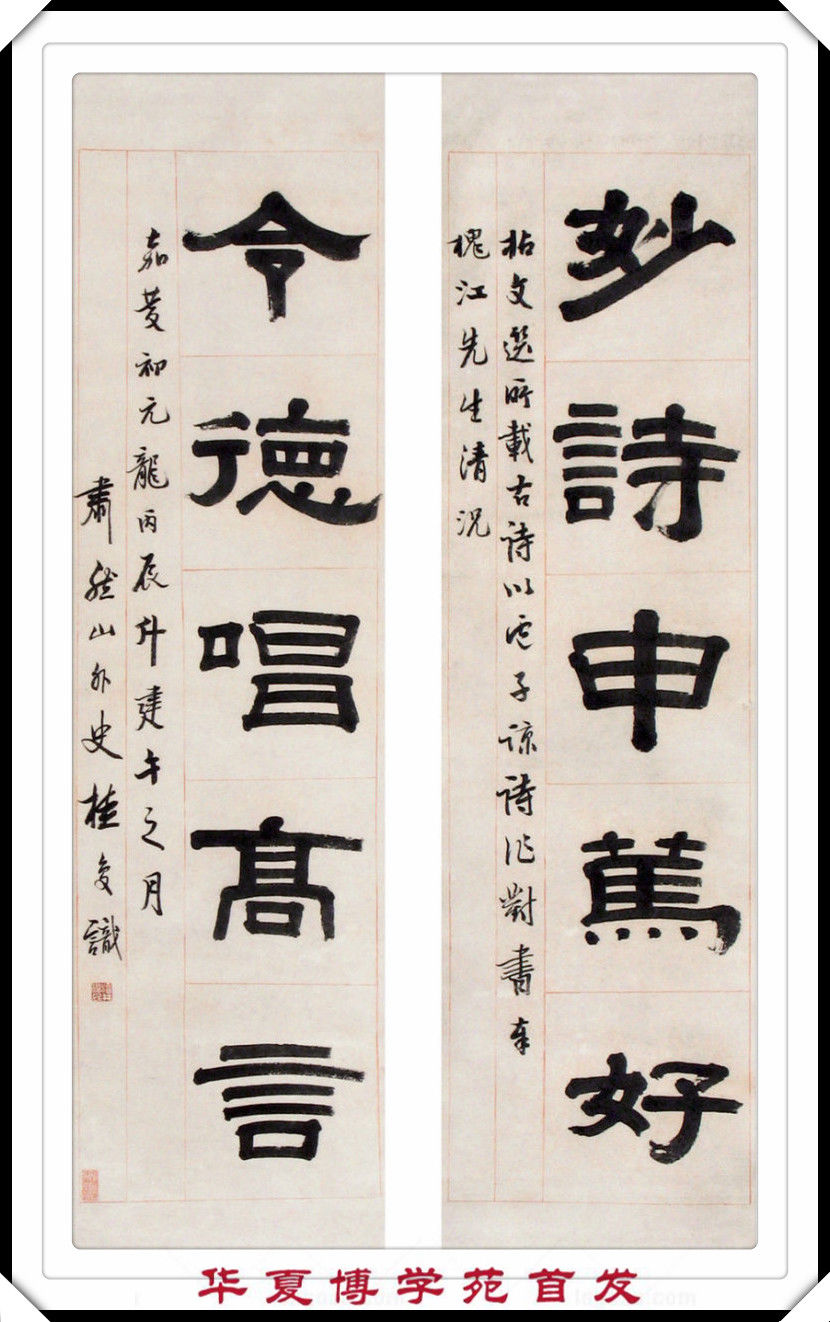 妙詩申篤好
拈文選所載古詩以盧子諒詩作對書奉
槐江先生清況
令德唱髙言
嘉慶初元龍丙辰斗建午之月
肅然山外史桂复識
华夏博学苑首发